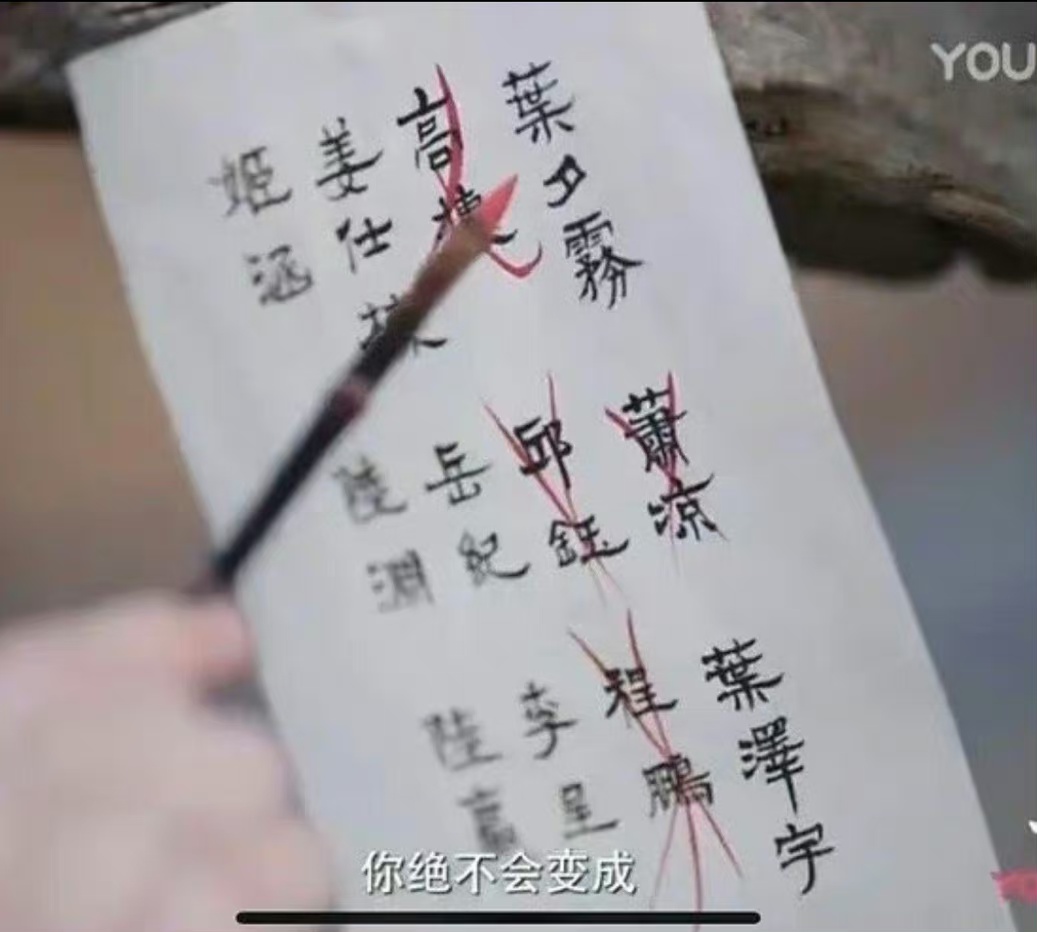 YOU
葉夕霧
高
姜仕
姬涵
蕭凉
邱鈺
岳紀
陸淵
葉澤宇
程鵬
李呈
陸嵩
你绝不会变成